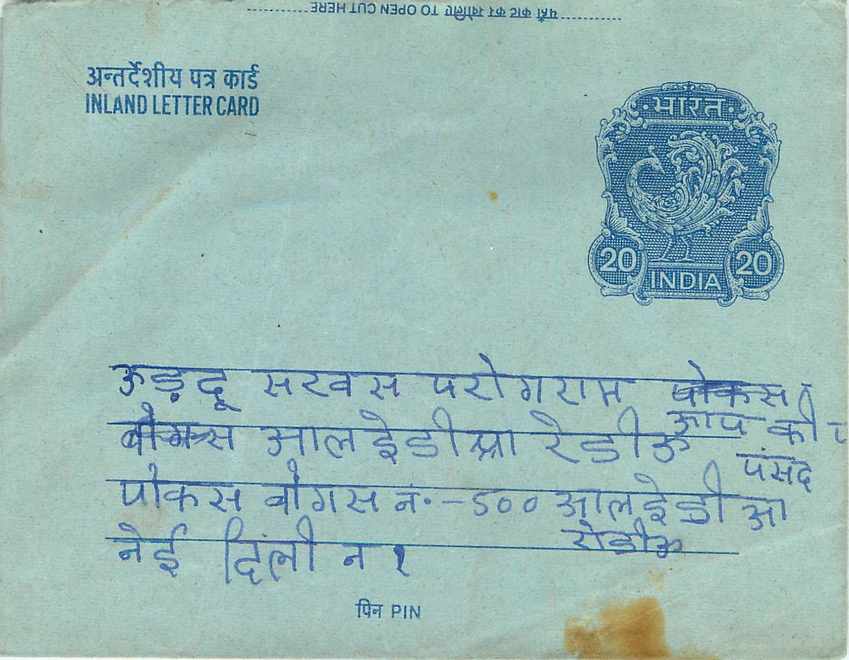 यहाँ काट कर खोलिए TO OPEN CUT HERE
अन्तर्देशीय पत्र कार्ड
INLAND LETTER CARD
भारत
20 INDIA 20
ऊड़दू सरवस परोगराम
आप की
आल इंडीआ रेडीऊ
पंसद
पोकस बोगस नं॰ -500 आल इंडी आ
रेडीऊ
नेई दिंली न १
पिन PIN